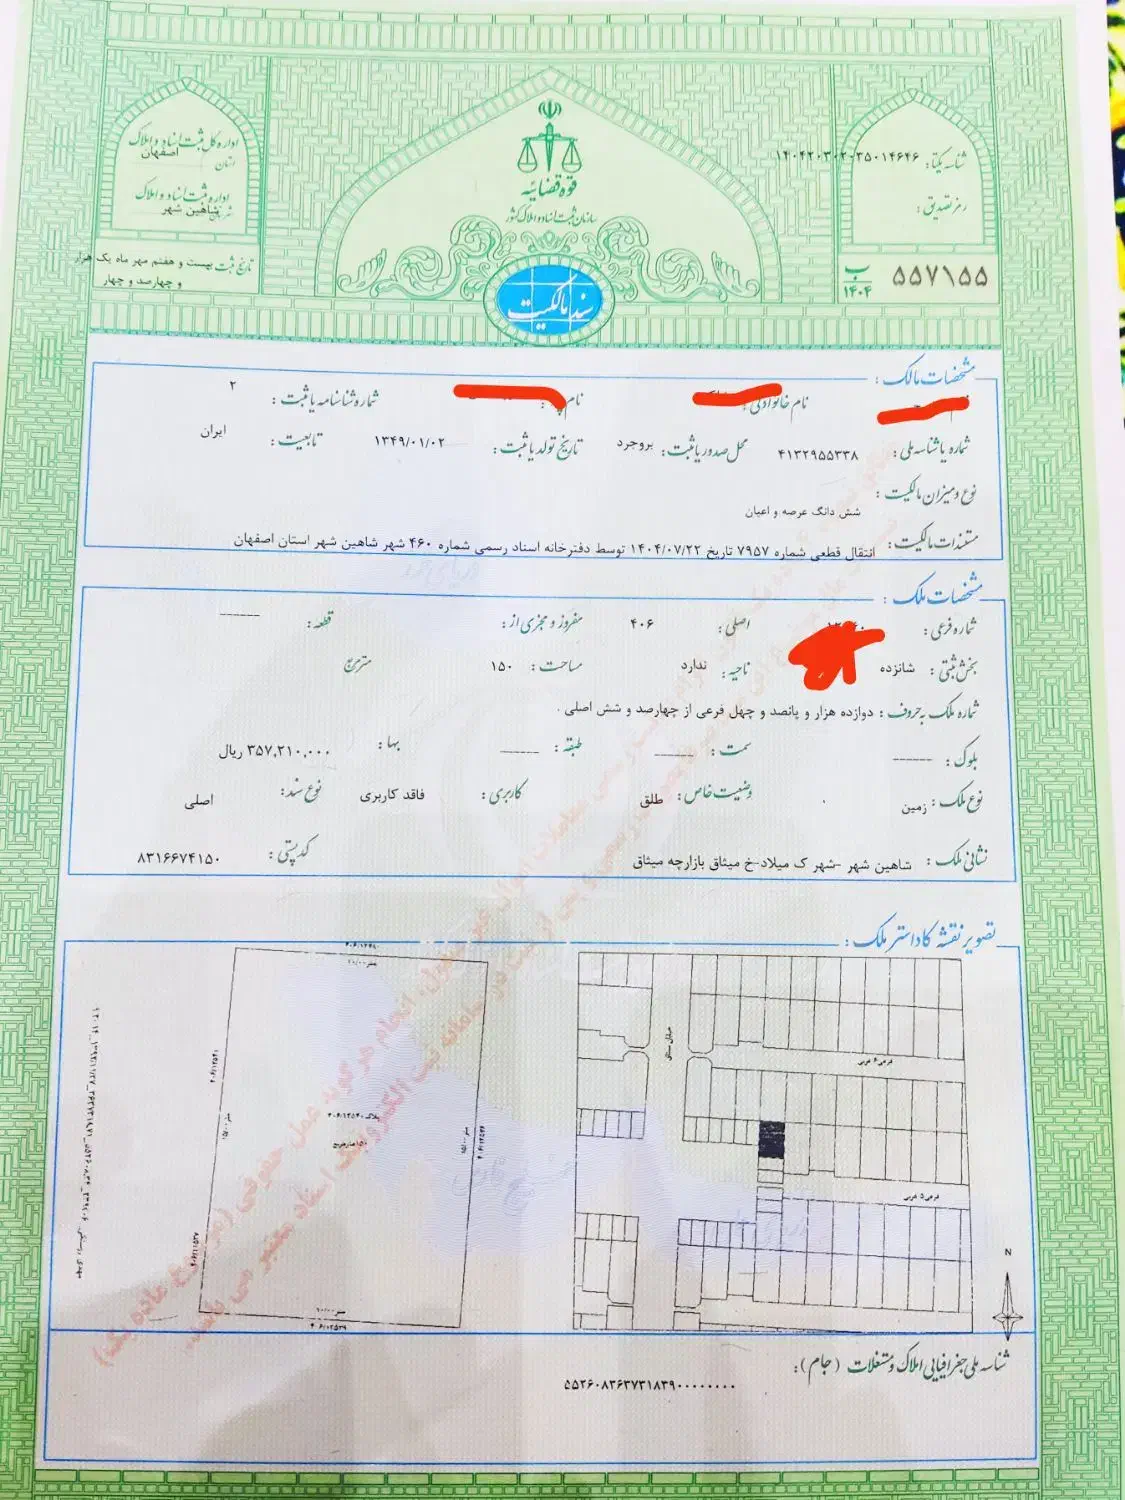 اداره کل ثبت اسناد و املاک
استان اصفهان
اداره ثبت اسناد و املاک
شاهین شهر
تاریخ ثبت بیست و هفتم مهر ماه یک هزار
و چهارصد و چهار
قوه قضائیه
سازمان ثبت اسناد و املاک کشور
سند مالکیت
شناسه یکتا: ۱۴۰۴۲۰۳۰۲۰۳۵۰۱۴۶۴۶
رمز تصدیق:
ب ۱۴۰۴ ۵۵۷۱۵۵
مشخصات مالک:
نام خانوادگی: نام شماره شناسنامه یا ثبت: ۲
شماره یا شناسه ملی: ۴۱۳۲۹۵۵۳۳۸ محل صدور یا ثبت: بروجرد تاریخ تولد یا ثبت: ۱۳۴۹/۰۱/۰۲ تابعیت: ایران
نوع و میزان مالکیت:
شش دانگ عرصه و اعیان
مستندات مالکیت: انتقال قطعی شماره ۷۹۵۷ تاریخ ۱۴۰۴/۰۷/۲۲ توسط دفترخانه اسناد رسمی شماره ۴۶۰ شهر شاهین شهر استان اصفهان
مشخصات ملک:
شماره فرعی: اصلی: ۴۰۶ مفروز و مجزی از: قطعه: ------
بخش ثبتی: شانزده ناحیه: ندارد مساحت: ۱۵۰ مترمربع
شماره ملک به حروف: دوازده هزار و پانصد و چهل فرعی از چهارصد و شش اصلی .
بلوک: ------ سمت: ------ طبقه: ------ بها: ۳۵۷,۲۱۰,۰۰۰ ریال
نوع ملک: زمین وضعیت خاص: طلق کاربری: فاقد کاربری نوع سند: اصلی
نشانی ملک: شاهین شهر -شهر ک میلاد-خ میثاق بازارچه میثاق کدپستی: ۸۳۱۶۶۷۴۱۵۰
تصویر نقشه کاداستر ملک:
۴۰۶/۱۲۵۴۱
پلاک ۴۰۶/۱۲۵۴۰
۱۵۰ مترمربع
۱۰/۰۰ متر
۴۰۶/۱۲۵۳۹
فرعی ۶ غربی
فرعی ۵ غربی
N
شناسه ملی جغرافیایی املاک و مستغلات (جام):
۵۵۲۶۰۸۳۶۳۷۳۱۸۳۹۰۰۰۰۰۰۰۰